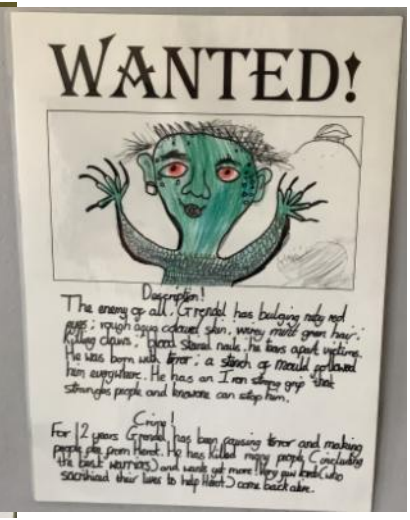 WANTED!
Description!
The enemy of all, Grendel has bulging ruby red
eyes; rough aqua coloured skin, wirey mint green hair;
killing claws; blood stained nails, he tears apart victims.
He was born with terror; a stench of mould followed
him everywhere. He has an Iron strong grip that
strangles people and knowone can stop him.
Crime!
For 12 years Grendel has been causing terror and making
people flee from Herot. He has killed many people (including
the best warriors) and wants yet more! Very few lords (who
sacrificed their lives to help Herot) come back alive.